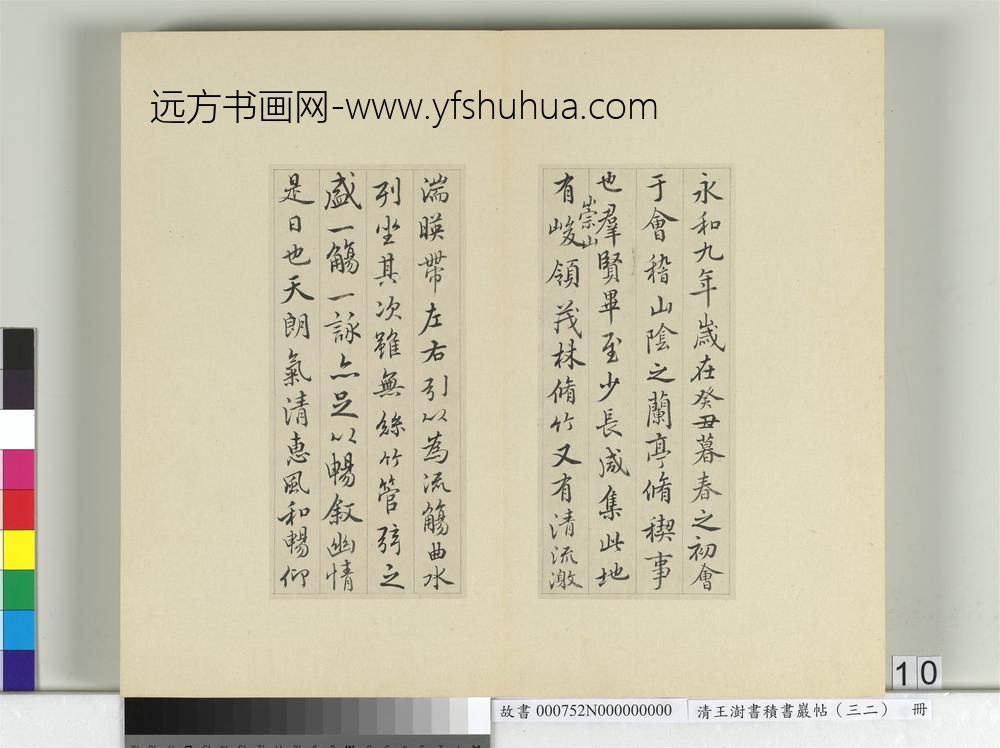 远方书画网-www.yfshuhua.com
永和九年歲在癸丑暮春之初會
于會稽山陰之蘭亭脩稧事
也羣賢畢至少長咸集此地
有崇山峻領茂林脩竹又有清流激
湍暎帶左右引以為流觴曲水
列坐其次雖無絲竹管弦之
盛一觴一詠亦足以暢敘幽情
是日也天朗氣清惠風和暢仰
10
故書 000752N000000000 清王澍書積書巖帖（三二） 冊